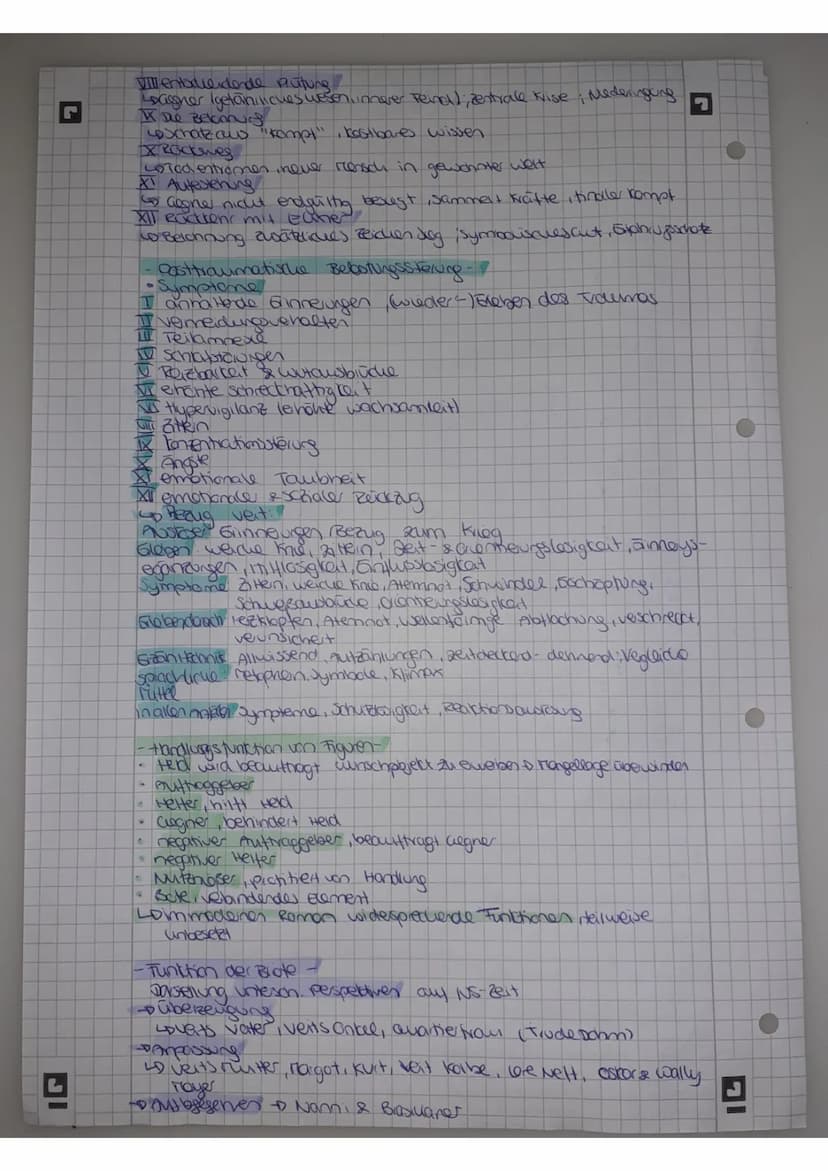 VIII entscheidende Prüfung
↳ Gegner (getänliches Wesen, innerer Feind); zentrale Krise; Niederringung
IX Die Belohnung
↳ Schatz aus "Kampf", kostbares Wissen
X Rückweg
↳ Tod entronnen, neuer Mensch in gewohnter Welt
XI Auferstehung
↳ Gegner nicht endgültig besiegt, sammelt Kräfte, finaler Kampf
XII Rückkehr mit Elixier
↳ Belohnung zusätzliches Zeichen Sieg; symbolisches Gut, Erfahrungsschatz
- Posttraumatische Belastungsstörung -
• Symptome
I anhaltende Erinnerungen, (wieder-)Erleben des Traumas
II Vermeidungsverhalten
III Teilamnesie
IV Schlafstörungen
V Reizbarkeit & Wutausbrüche
VI erhöhte Schreckhaftigkeit
VII Hypervigilanz (erhöhte Wachsamkeit)
VIII Zittern
IX Konzentrationsstörung
X Ängste
XI emotionale Taubheit
XII emotionaler & sozialer Rückzug
↳ Bezug Veit:
Auslöser Erinnerungen, Bezug zum Krieg
Erleben weiche Knie, Zittern, Zeit- & Orientierungslosigkeit, Erinnerungs-
ergänzungen, Hilflosigkeit, Einflusslosigkeit
Symptome Zittern, weiche Knie, Atemnot, Schwindel, Erschöpfung,
Schweißausbrüche, Orientierungslosigkeit
Herzklopfen, Atemnot, wellenförmige Abflachung, verschreckt,
verunsichert
Erzähltechnik Allwissend, Aufzählungen, zeitdeckend-dehnend; Vergleiche
sprachliche Metaphern, Symbole, Klimax
Mittel
in allen Symptome, Schutzlosigkeit,
- Handlungsfunktion von Figuren -
• Held wird beauftragt Wunschprojekt zu erwerben → Mangellage überwinden
• Auftraggeber
• Helfer, hilft Held
• Gegner, behindert Held
• negativer Auftraggeber, beauftragt Gegner
• negativer Helfer
• Nutznießer, profitiert von Handlung
• Bote, verbindendes Element
↳ im modernen Roman widersprechende Funktionen, teilweise
unbesetzt
- Funktion der Briefe -
Darstellung untersch. Perspektiven auf NS-Zeit
→ Überzeugung
↳ Veits Vater, Veits Onkel, Quartierfrau (Trude Dohm)
→ Anpassung
↳ Veits Mutter, Margot, Kurt, Veit Kolbe, Lore Neff, Oskar & Wally
Meyer
→ Ausbegehren → Nanni & Brasilianer